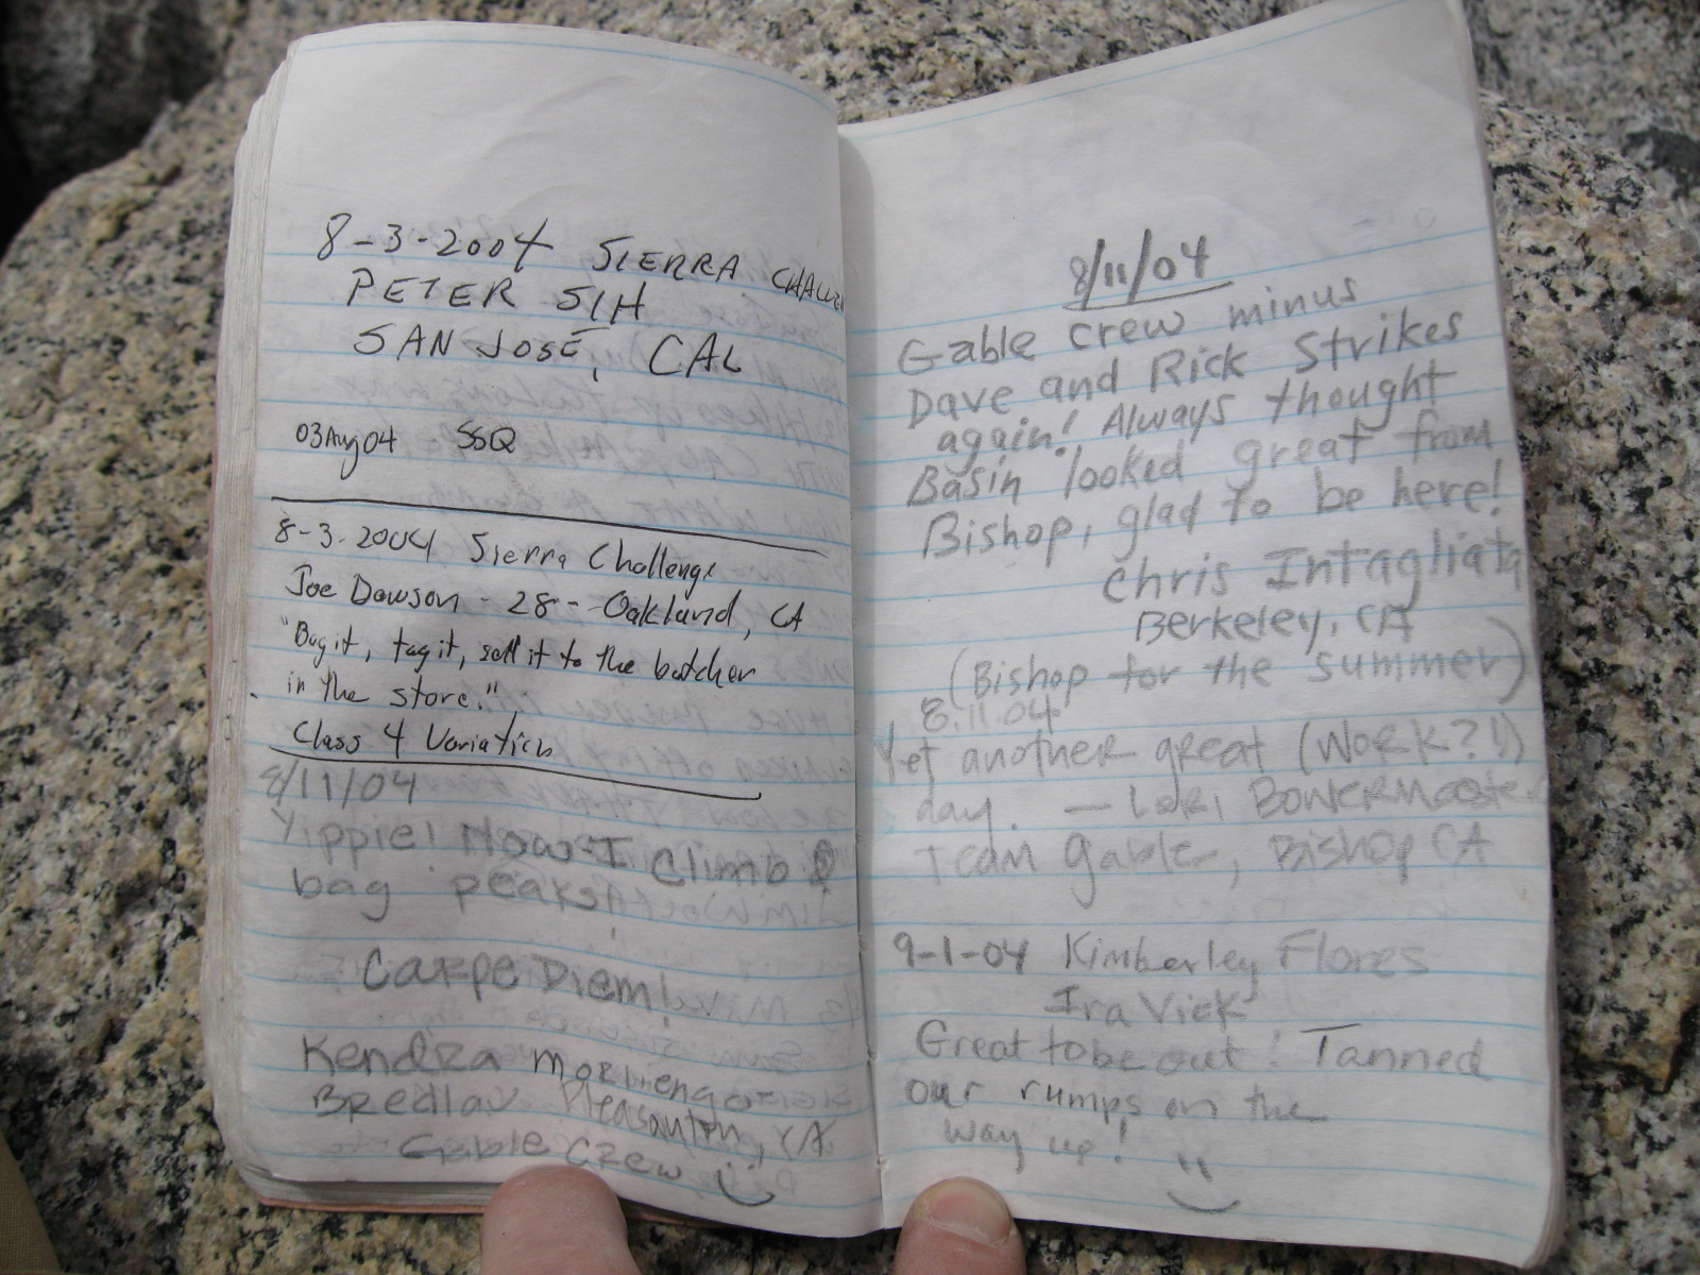 8-3-2004 SIERRA
PETER SIH
SAN JOSÉ, CAL
03Aug04 SSQ
8-3-2004 Sierra Challenge
Joe Dawson - 28 - Oakland, CA
"Bag it, tag it, sell it to the butcher
in the store."
Class 4 Variation
8/11/04
Yippie! Now I Climb &
bag peaks!
Carpe Diem!
Kendra
Pleasanton, CA
Gable Crew
8/11/04
Gable crew minus
Dave and Rick Strikes
again! Always thought
Basin looked great from
Bishop, glad to be here!
Chris Intagliata
Berkeley, CA
(Bishop for the summer)
8.11.04
Yet another great (Work?!)
day. — Lori Bowermaster
Team Gable, Bishop CA
9-1-04 Kimberley Flores
Ira Vick
Great to be out! Tanned
our rumps on the
way up!